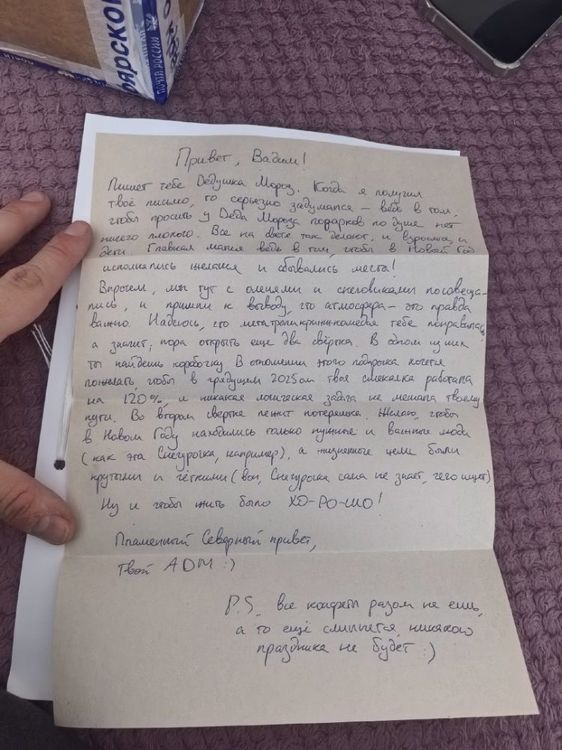 ЯРСКО
ПОЧТА РОССИИ
Привет, Вадим!
Пишет тебе Дедушка Мороз. Когда я получил
твоё письмо, то серьёзно задумался – ведь в том,
чтобы просить у Деда Мороза подарков по душе нет
ничего плохого. Все на свете так делают, и взрослые, и
дети. Главная магия ведь в том, чтобы в Новый Год
исполнялись желания и сбывались мечты!
Впрочем, мы тут с оленями и снеговиками посовеща-
лись, и пришли к выводу, что атмосфера – это правда
важно. Надеюсь, что тебе понравилась,
а значит, пора открыть ещё два свёртка. В одном из них
ты найдешь коробочку. В отношении этого подарка хочется
пожелать, чтобы в грядущем 2025ом твоя смекалка работала
на 120% и никакая логическая задача не мешала твоему
пути. Во втором свертке лежит потеряшка. Желаю, чтобы
в Новом Году находились только нужные и важные люди
(как эта Снегурочка, например), а жизненные цели были
крутыми и чёткими (вон, Снегурочка сама не знает, чего ищет)
Ну и чтобы жить было ХО-РО-ШО!
Пламенный Северный привет,
Твой АДМ :)
P.S. все конфеты разом не ешь,
а то ещё слипнется, никакого
праздника не будет :)